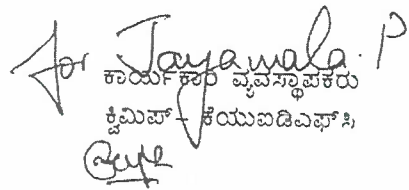 for Jayamala. P
ಕಾರ್ಯಕಾರಿ ವ್ಯವಸ್ಥಾಪಕರು
ಕ್ವಿಮಿಪ್ - ಕೆಯುಐಡಿಎಫ್‌ಸಿ